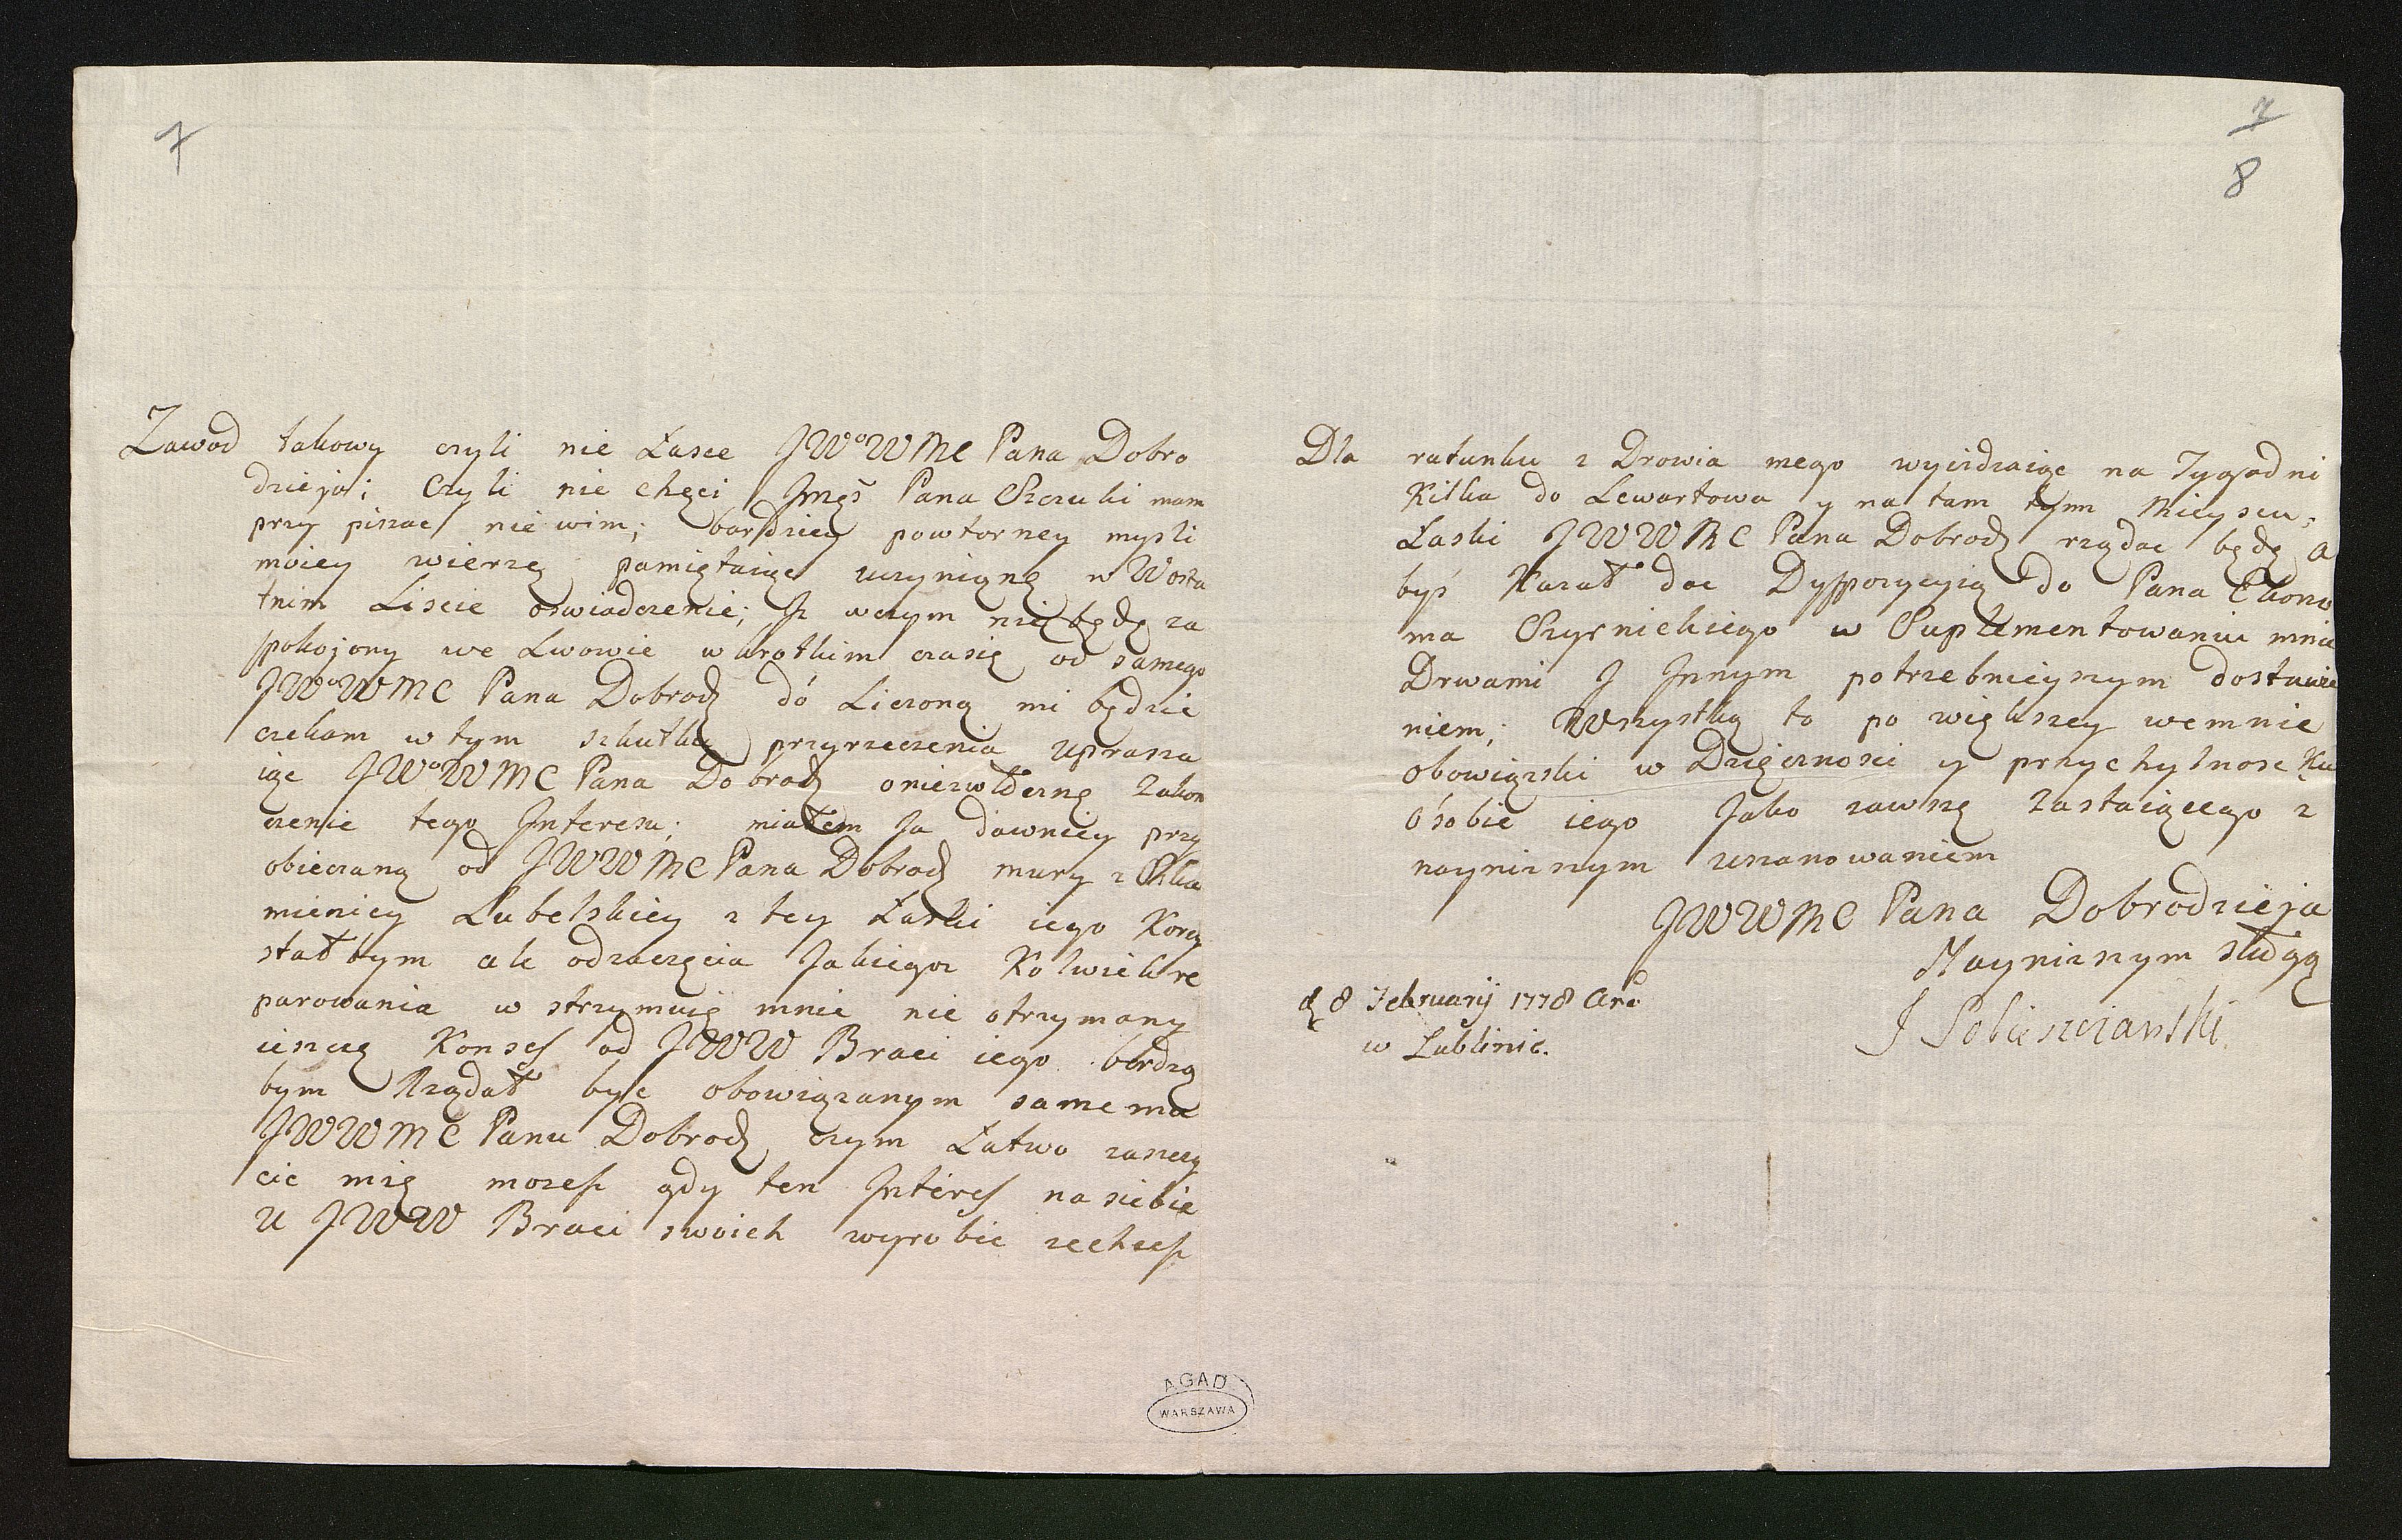 7
Zawod takowy czyli nie Łasce JWoWMC Pana Dobro
dzieja; Czyli nie chęci Jmęs Pana Szczuki mam
przy pisac nie wim; bardziey powtorney mysli
moiey wierzę pamiętaiąc uczynioną w Wosta
tnim Liscie oswiadczenie; Jz wczym nie będę za
spokojony we Lwowie w krotkim czasię od samego
JWoWMC Pana Dobrodz dó Liczoną mi będzie
czekam w tym szkutku przyrzeczenia upra sza
iąc JWoWMC Pana Dobrodz o niezwłoczne Zakon
czenie tego Jnteresu; miałem Ja dawniey przy
obiecaną od JWWMC Pana Dobrodz mury z
mienicy Lubelskiey z tey Łaski iego Korzy
stał bym ale odzaczęcia Jakiegoz Kolwiek re
parowania w strzymuię mnie nie otrzymany
ieszczę Konses od JWW Braci iego bardzo
bym Rządał byc obowiązanym samemu
JWWMC Panu Dobrodz czym Łatwo zaszczy
cic mię mozesz gdy ten Jnteres na siebie
U JWW Braci swoich wyrobic zechcesz
7
8
Dla ratunku z Drowia mego wyiezdzaiąc na Tygodni
Kilka do Lewartowa y na tam tym Mieyscu;
Łaski JWWMC Pana Dobrodz rządac będę A
byś Kazał dac Dyspozycyią do Pana Ekono
ma w Suplementowaniu mnie
Drwami J Jnnym potrzebnieyszym dostawie
niem; Wszystko to po większey wemnie
obowiązki w Dzięcznosci y przychylnosc Ku
ósobie iego Jako zawszę zastaiącego z
nayniszym uszanowaniem
JWWMC Pana Dobrodzieja
Nayniszym sługą
d 8 February 1778 Ao
w Lublinie.
AGAD
WARSZAWA